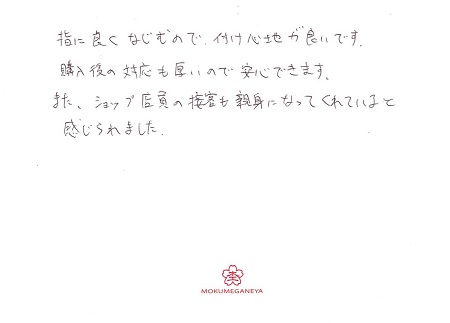 指に良くなじむので、付け心地が良いです。
購入後の対応も厚いので安心できます。
また、ショップ店員の接客も親身になってくれていると
感じられました。
MOKUMEGANEYA